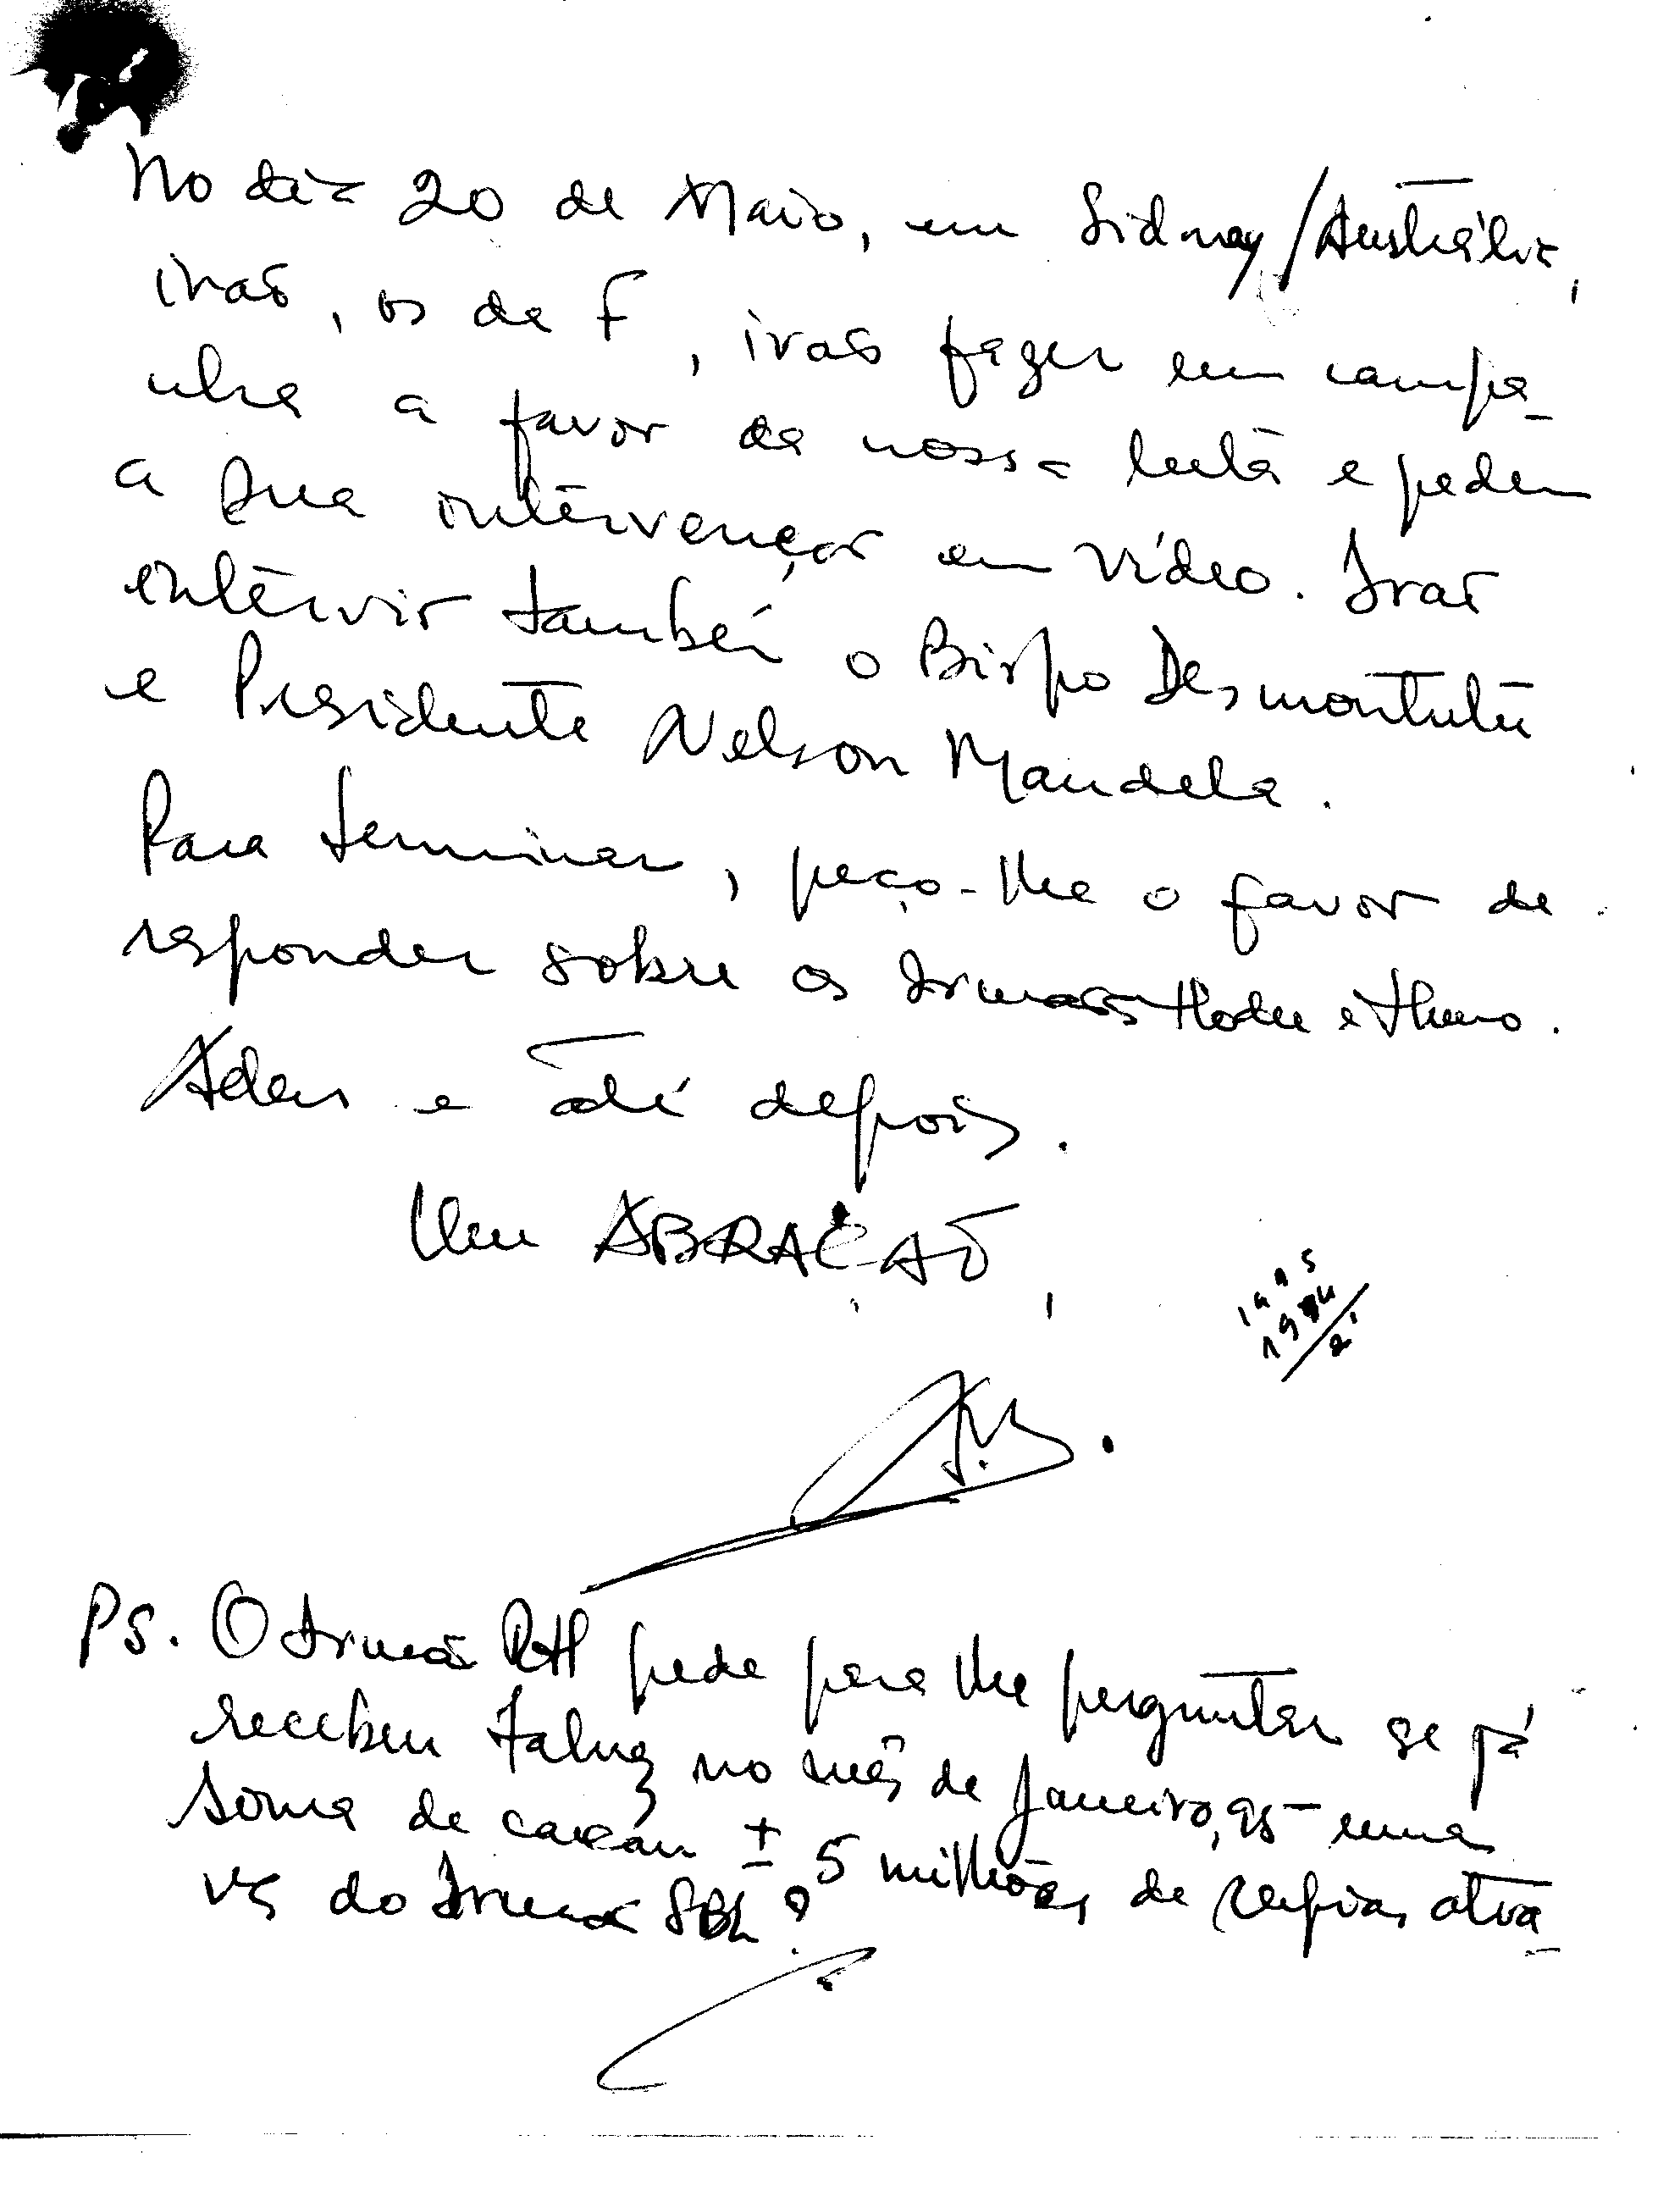 No dia 20 de Maio, em Sidney/Austrália,
irão, os da F, irão fazer em campa-
nha a favor da nossa luta e pedem
a sua intervenção em vídeo. Irão
intervir também o Bispo Desmontutu
e Presidente Nelson Mandela.
Para terminar, peço-lhe o favor de
responder sobre os Irmãos Hodu e Huno.
Adeus e até depois.
Um ABRAÇÃO,
1995
1974
21
Ps. O Irmão RH pede para lhe perguntar se já
recebeu talvez no mês de Janeiro, 95 uma
soma de ± 5 milhões de rupias atra-
vés do Irmão SBL?